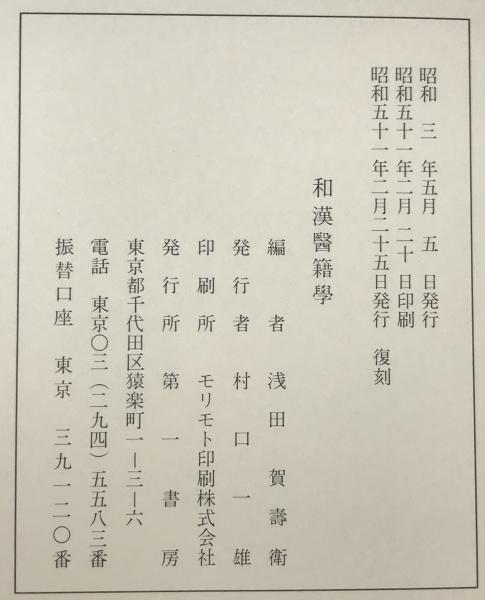 昭和 三 年五月 五 日発行
昭和五十一年二月 二十 日印刷
昭和五十一年二月二十五日発行 復刻
和漢醫籍學
編者 浅田賀壽衛
発行者 村口一雄
印刷所 モリモト印刷株式会社
発行所 第一書房
東京都千代田区猿楽町一―三―六
電話 東京〇三(二九四)五五八三番
振替口座 東京 三九一二〇番